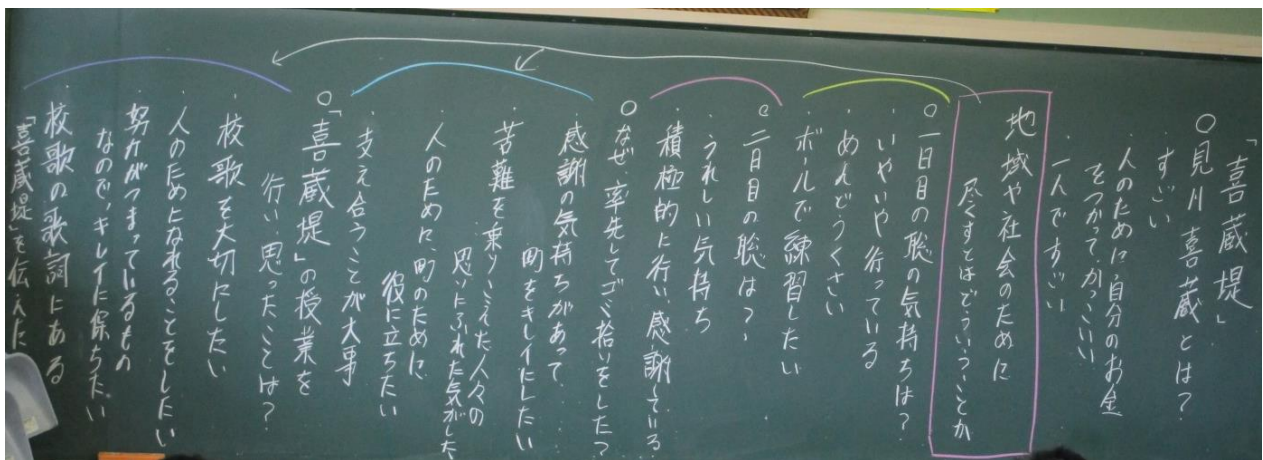 「喜蔵堤」
○見川喜蔵とは？
・すごい
人のために自分のお金
をつかってかっこいい
・一人ですごい
地域や社会のために
尽くすとはどういうことか
○一日目の聡の気持ちは？
・いやいや行っている
・めんどうくさい
・ボールで練習したい
○二日目の聡は？
・うれしい気持ち
・積極的に行い、感謝している
○なぜ、率先してゴミ拾いをした？
・感謝の気持ちがあって
町をキレイにしたい
・苦難を乗りこえた人々の
思いにふれた気がした
・人のために、町のために
役に立ちたい
・支え合うことが大事
○「喜蔵堤」の授業を
行い、思ったことは？
・校歌を大切にしたい
・人のためになれることをしたい
・努力がつまっているもの
なので、キレイに保ちたい
・校歌の歌詞にある
「喜蔵堤」を伝えた